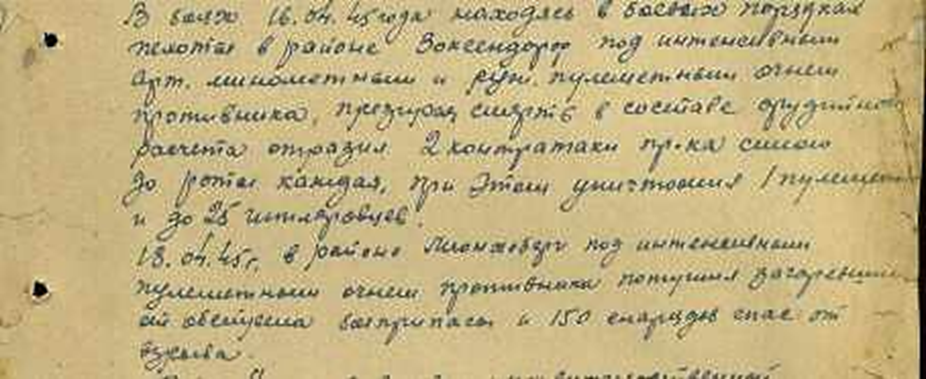 В боях 16.04.45 года находясь в боевых порядках
пехоты в районе Воксендорф под интенсивным
арт. минометным и руж. пулеметным огнем
противника, презирая смерть в составе орудийного
расчета отразил 2 контратаки пр-ка силою
до роты каждая, при этом уничтожил 1 пулемет
и до 25 гитлеровцев.
18.04.45г. в районе Мюнхеберг под интенсивным
пулеметным огнем противника потушил загоревши
ой боеприпасы и 150 снарядов спас от
взрыва.